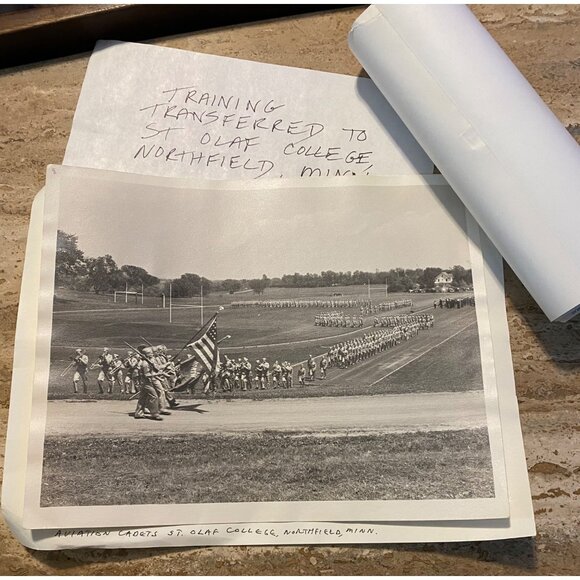 TRAINING
TRANSFERRED TO
ST OLAF COLLEGE,
NORTHFIELD, MINN.
AVIATION CADETS ST. OLAF COLLEGE, NORTHFIELD, MINN.